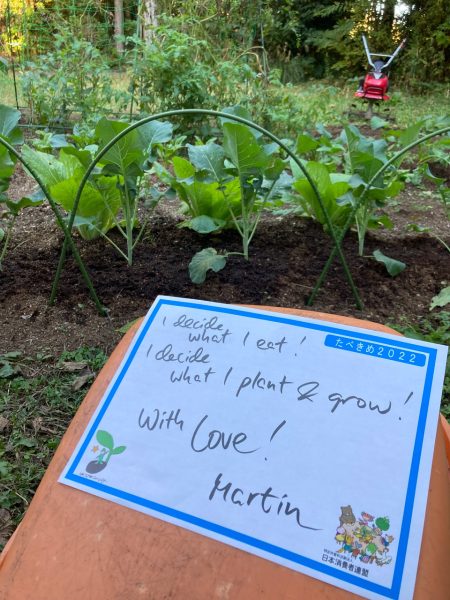 I decide
what I eat!
たべきめ2022
I decide
what I plant & grow!
With Love!
Martin
日本消費者連盟